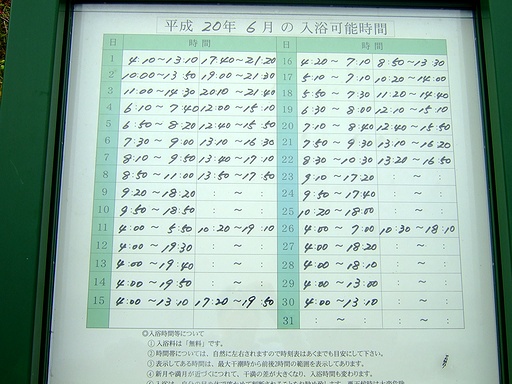 平成 20年 6月の入浴可能時間
日 時間 日 時間
1 4:10~13:10 17:40~21:20 16 4:20~7:10 8:50~13:30
2 10:00~13:50 19:00~21:30 17 5:10~7:10 10:20~14:00
3 11:00~14:30 20:10~21:40 18 5:50~7:30 11:20~14:40
4 6:10~7:40 12:00~15:10 19 6:30~8:00 12:10~15:10
5 6:50~8:20 12:40~15:50 20 7:10~8:40 12:40~15:50
6 7:30~9:00 13:10~16:30 21 7:50~9:30 13:10~16:20
7 8:10~9:50 13:40~17:10 22 8:30~10:30 13:20~16:50
8 8:50~11:00 13:50~17:50 23 9:10~17:20 : ~ :
9 9:20~18:20 : ~ : 24 9:50~17:40 : ~ :
10 9:50~18:50 : ~ : 25 10:20~18:00 : ~ :
11 4:00~5:50 10:20~19:10 26 4:00~7:00 10:30~18:10
12 4:00~19:30 : ~ : 27 4:00~18:20 : ~ :
13 4:00~19:40 : ~ : 28 4:00~18:10 : ~ :
14 4:00~19:50 : ~ : 29 4:00~13:00 : ~ :
15 4:00~13:10 17:20~19:50 30 4:00~13:10 : ~ :
31 : ~ : : ~ :
◎入浴時間等について
①入浴料は「無料」です。
②時間等については、自然に左右されますので時刻表はあくまでも目安にして下さい。
③表示してある時間は、最大干潮時から前後2時間の範囲を表示してあります。
④新月や満月が近づくにつれて、干満の差が大きくなり、入浴時間も変わります。